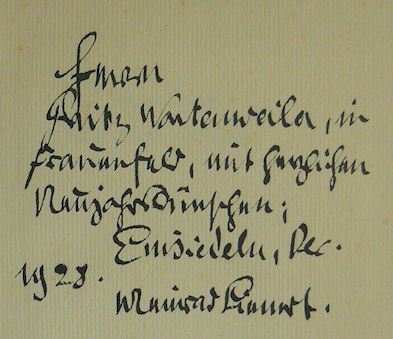 Herrn
Fritz Wartenweiler, in
Frauenfeld, mit herzlichen
Neujahrswünschen;
Einsiedeln, Dec.
1928.
Meinrad Lienert.